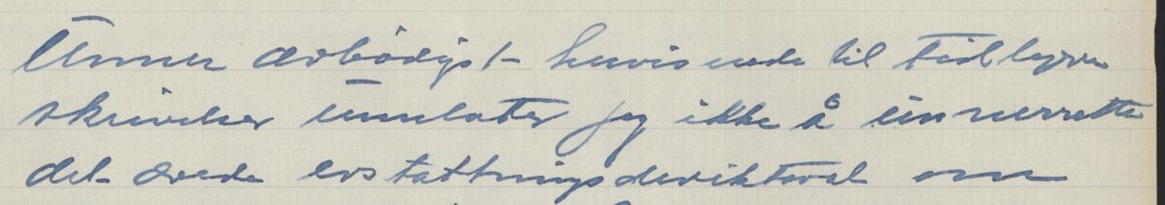 Unner ærbödigst henvisende til tidligere
skrivelser unnlater jeg ikke å unnerrette
det ærede erstattningsdirektorat om